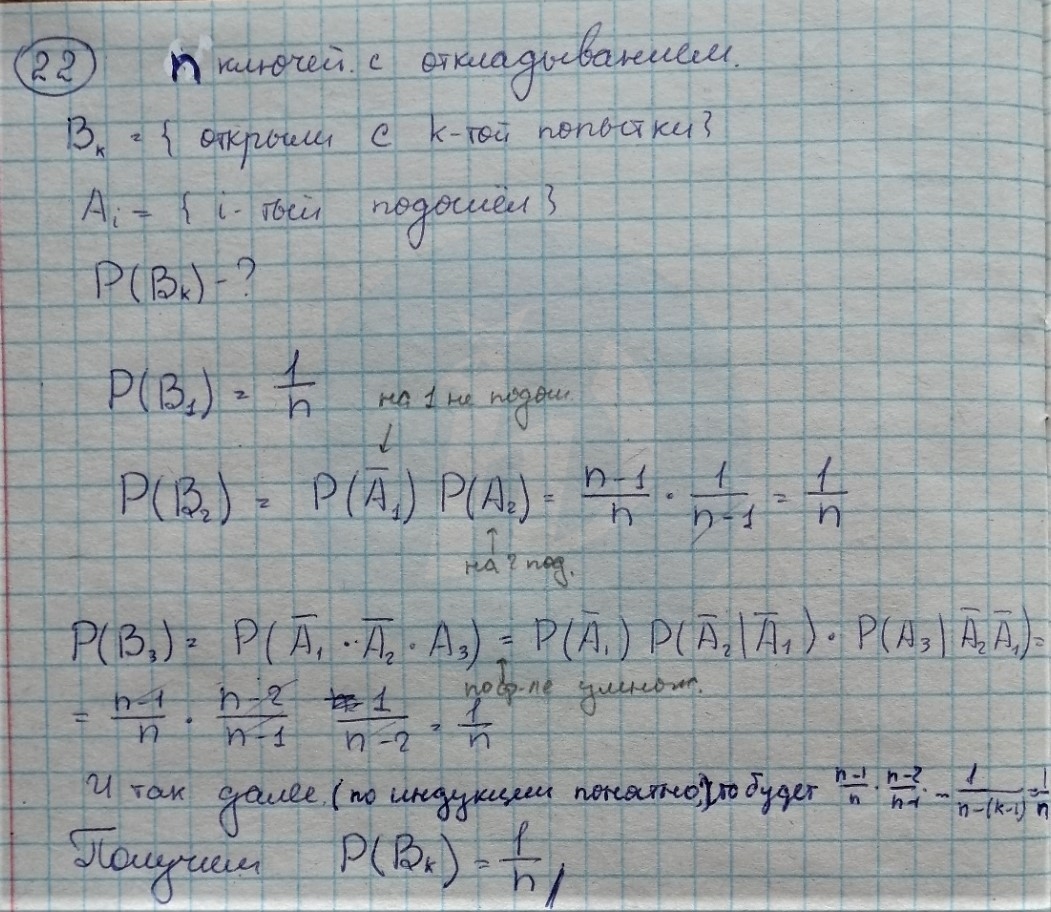 22 n ключей с откладыванием.
Bₖ = { открыли с k-той попытки }
Aᵢ = { i-тый подошёл }
P(Bₖ) - ?
P(B₁) = 1/n
на 1 не подош.
↓
P(B₂) = P(Ā₁) P(A₂) = (n-1)/n · 1/(n-1) = 1/n
↑
на 2 под.
P(B₃) = P(Ā₁ · Ā₂ · A₃) = P(Ā₁) P(Ā₂|Ā₁) · P(A₃|Ā₂Ā₁) =
↑
по ф-ле умнож.
= (n-1)/n · (n-2)/(n-1) 1/(n-2) = 1/n
И так далее (по индукции понятно, что будет (n-1)/n · (n-2)/(n-1) ... 1/(n-(k-1)) = 1/n
Получим P(Bₖ) = 1/n